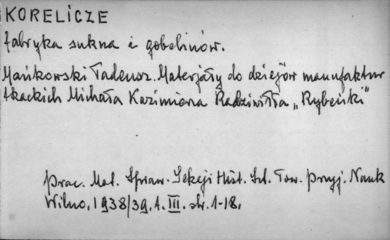 KORELICZE
fabryka sukna i gobelinów.
Mańkowski Tadeusz. Materjały do dziejów manufaktur
tkackich Michała Kazimierza Radziwiłła „Rybeńki"
Prac. Mat. Spraw. Sekcji Hist. Szt. Tow. Przyj. Nauk
Wilno, 1938/39. t. III. str. 1-18.